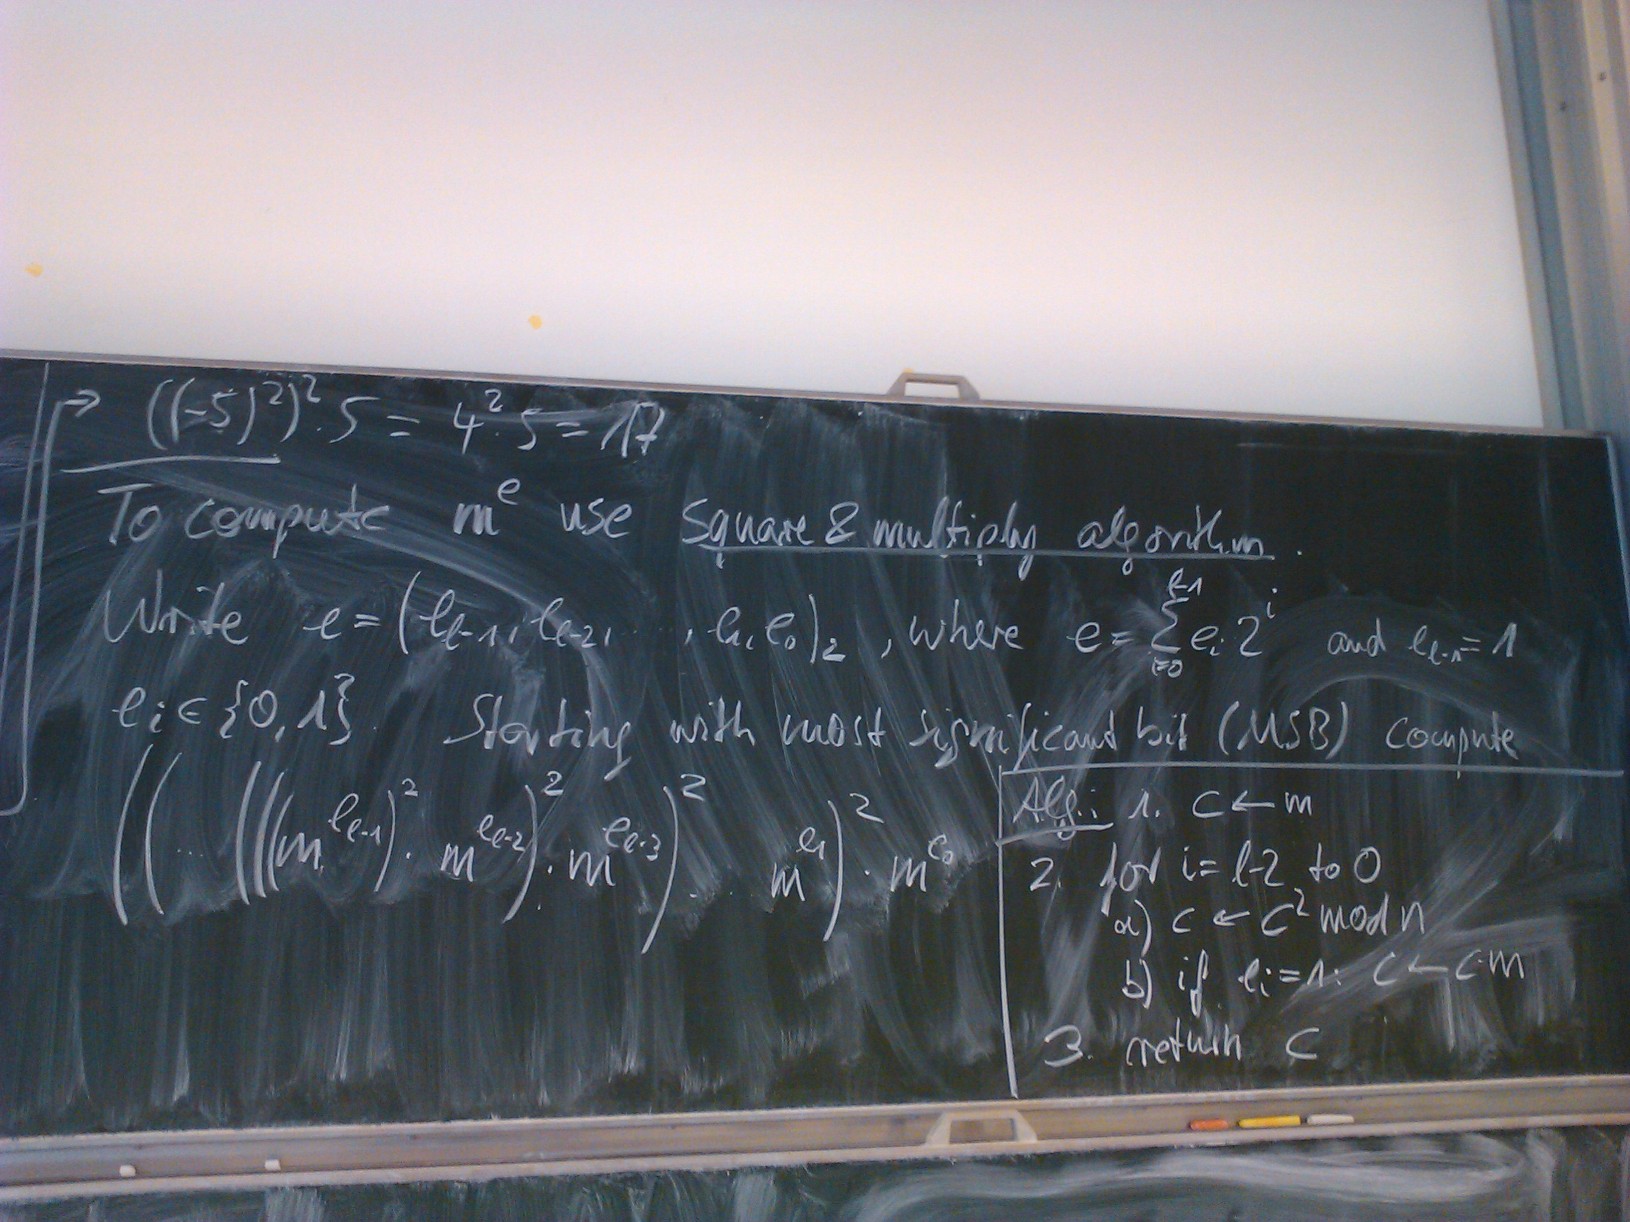 → ((-5)²)²·5 = 4²·5 = 17
To compute m^e use Square & multiply algorithm.
Write e = (e_{l-1}, e_{l-2}, ..., e_1, e_0)_2, where e = Σ_{i=0}^{l-1} e_i 2^i and e_{l-1} = 1
e_i ∈ {0,1}. Starting with most significant bit (MSB) compute
((...(((m^{e_{l-1}})²·m^{e_{l-2}})²·m^{e_{l-3}})²·...m^{e_1})²·m^{e_0}
Alg.: 1. c ← m
2. for i = l-2 to 0
a) c ← c² mod n
b) if e_i = 1: c ← c·m
3. return c